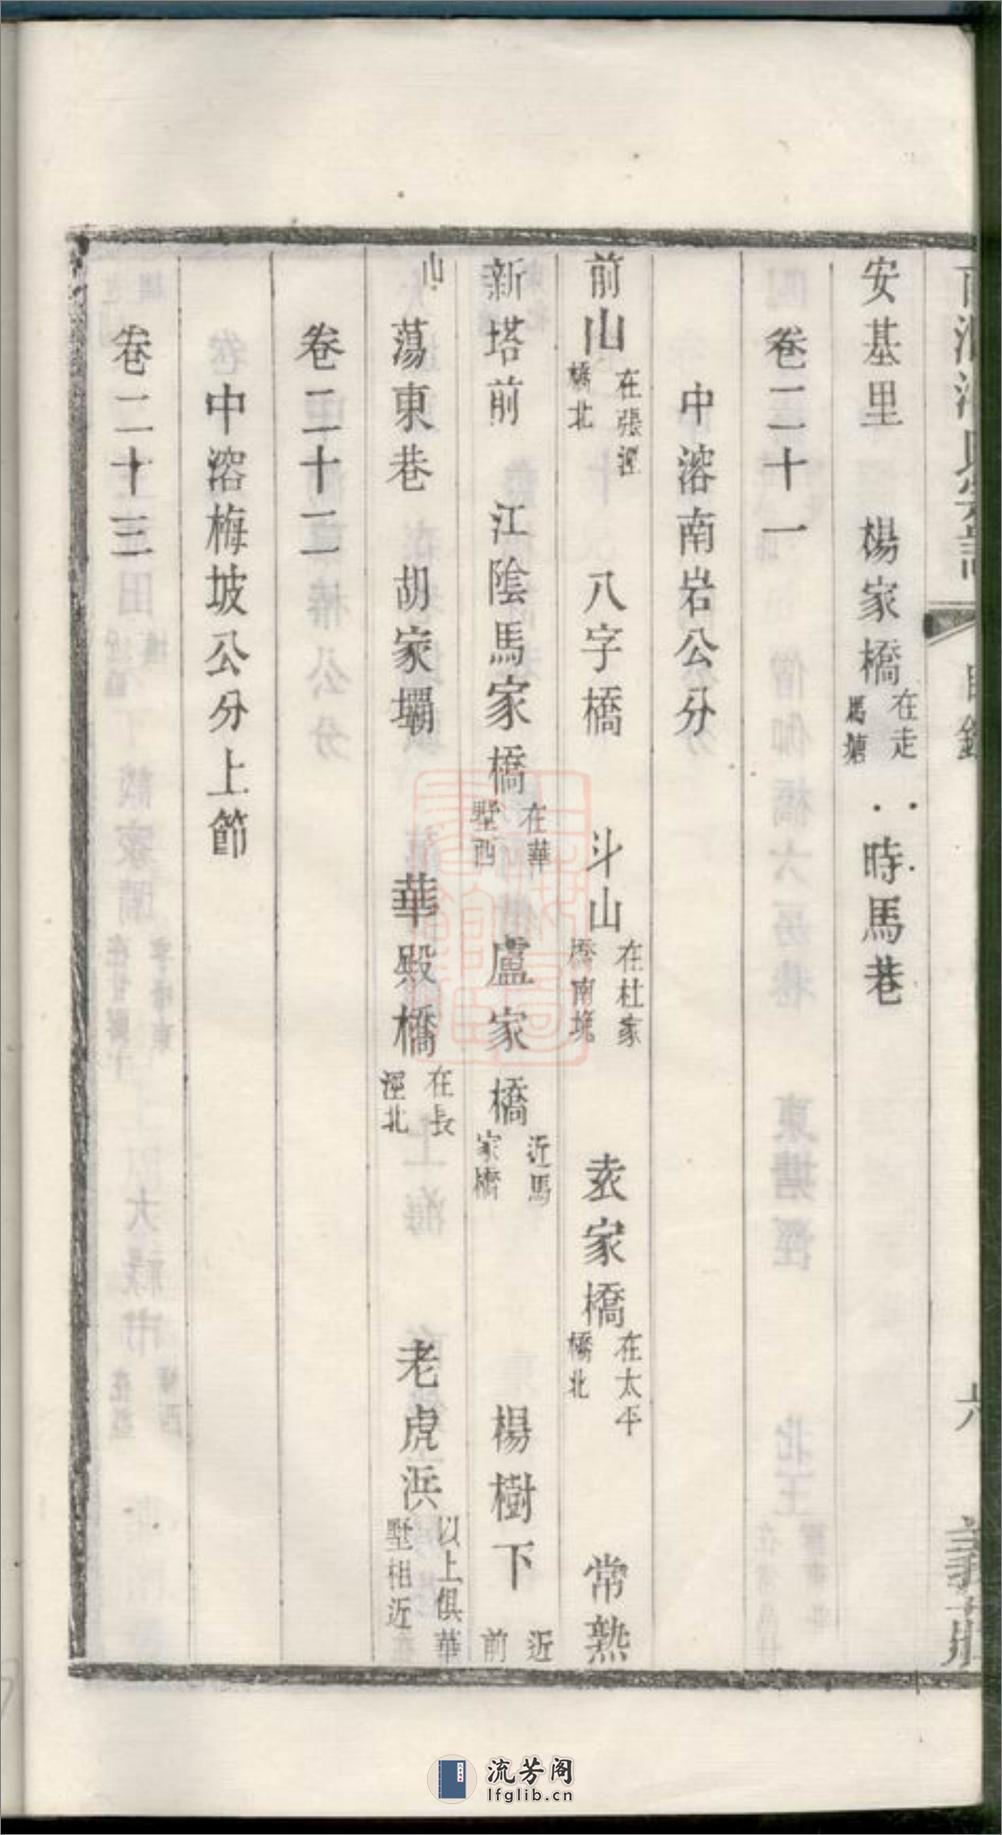 目錄
六
義莊
安基里 楊家橋 在走馬塘 時馬巷
卷二十一
中溶南岩公分
前山 在張涇橋北 八字橋 斗山 在杜家橋南堍 袁家橋 在太平橋北 常熟
新塔前 江陰馬家橋 在華墅西 盧家橋 近馬家橋 楊樹下 近前
山 蕩東巷 胡家壩 華殿橋 在長涇北 老虎浜 以上俱華墅相近
卷二十二
中溶梅坡公分上節
卷二十三
流芳阁
lfglib.cn